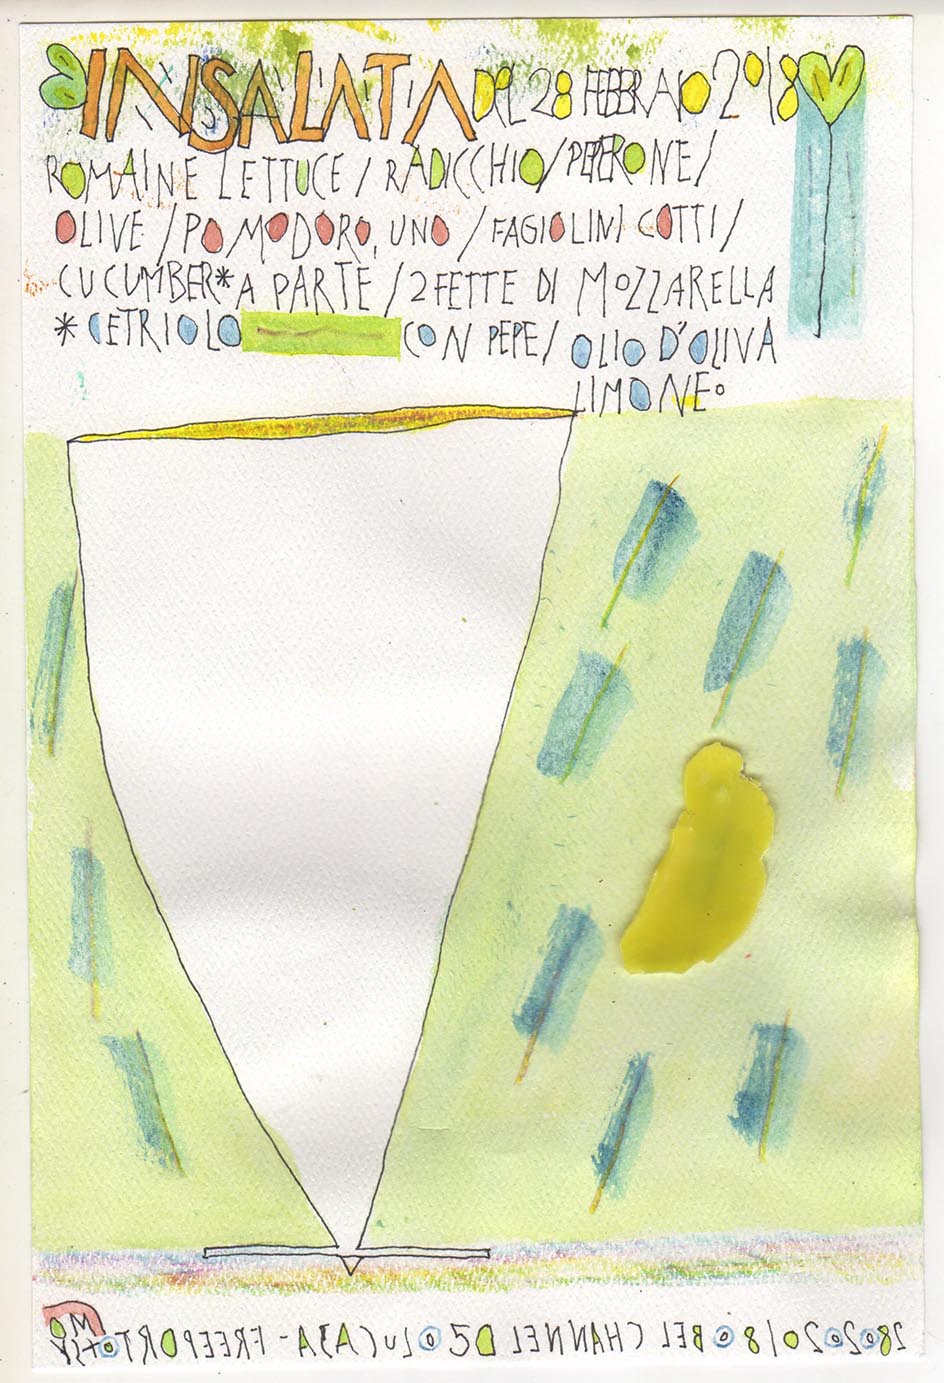 INSALATA DEL 28 FEBBRAIO 2018
ROMAINE LETTUCE / RADICCHIO / PEPERONE /
OLIVE / POMODORO, UNO / FAGIOLINI COTTI /
CUCUMBER* A PARTE / 2 FETTE DI MOZZARELLA
* CETRIOLO CON PEPE / OLIO D'OLIVA
LIMONE
28022018 BEL CHANNEL LUCAYA - FREEPORT